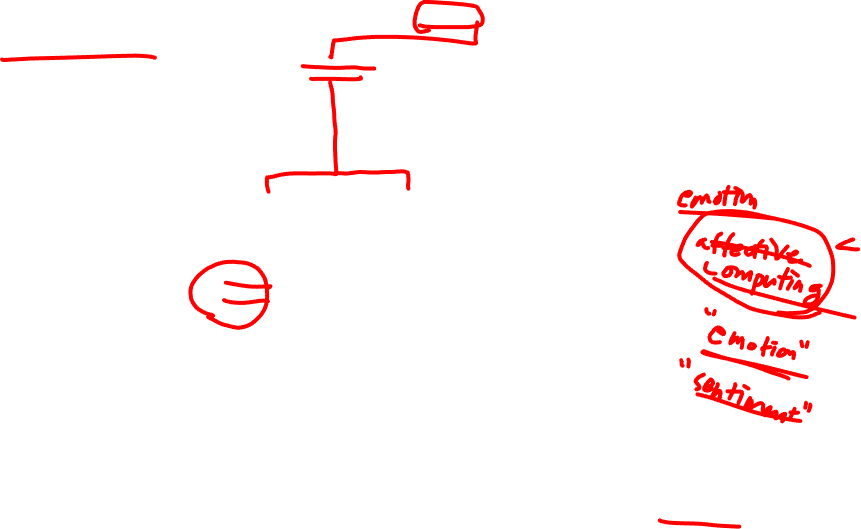 emotion
affective
computing
"emotion"
"sentiment"